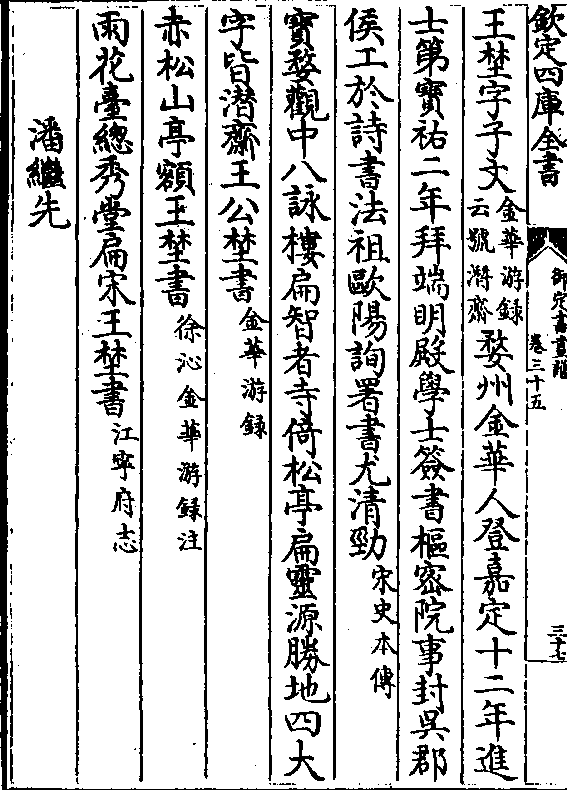 欽定四庫全書
御定書畫譜
卷三十五
三十七
王埜字子文金華游録云號潛齋婺州金華人登嘉定十二年進
士第寳祐二年拜端明殿學士簽書樞宻院事封吳郡
侯工於詩書法祖歐陽詢署書尤清勁宋史本傳
寳婺觀中八詠樓扁智者寺倚松亭扁靈源勝地四大
字皆潛齋王公埜書金華游録
赤松山亭額王埜書徐沁金華游録注
雨花臺總秀堂扁宋王埜書江寧府志
潘繼先